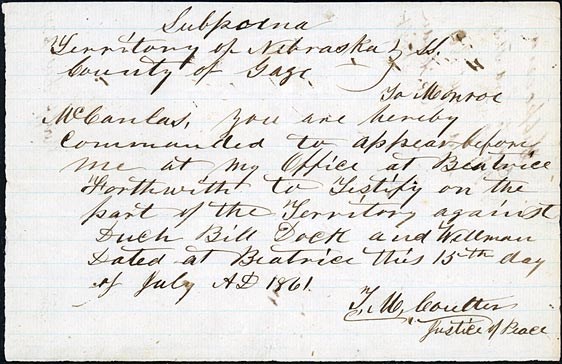 Subpoena
Territory of Nebraska } SS.
County of Gage
To Monroe
McCanlas, you are hereby
Commanded to appear before
me at my Office at Beatrice
Forthwith to Testify on the
part of the Territory against
Duch Bill Dock and Wellman
Dated at Beatrice this 15th day
of July AD 1861.
T. M. Coulter
Justice of Peace